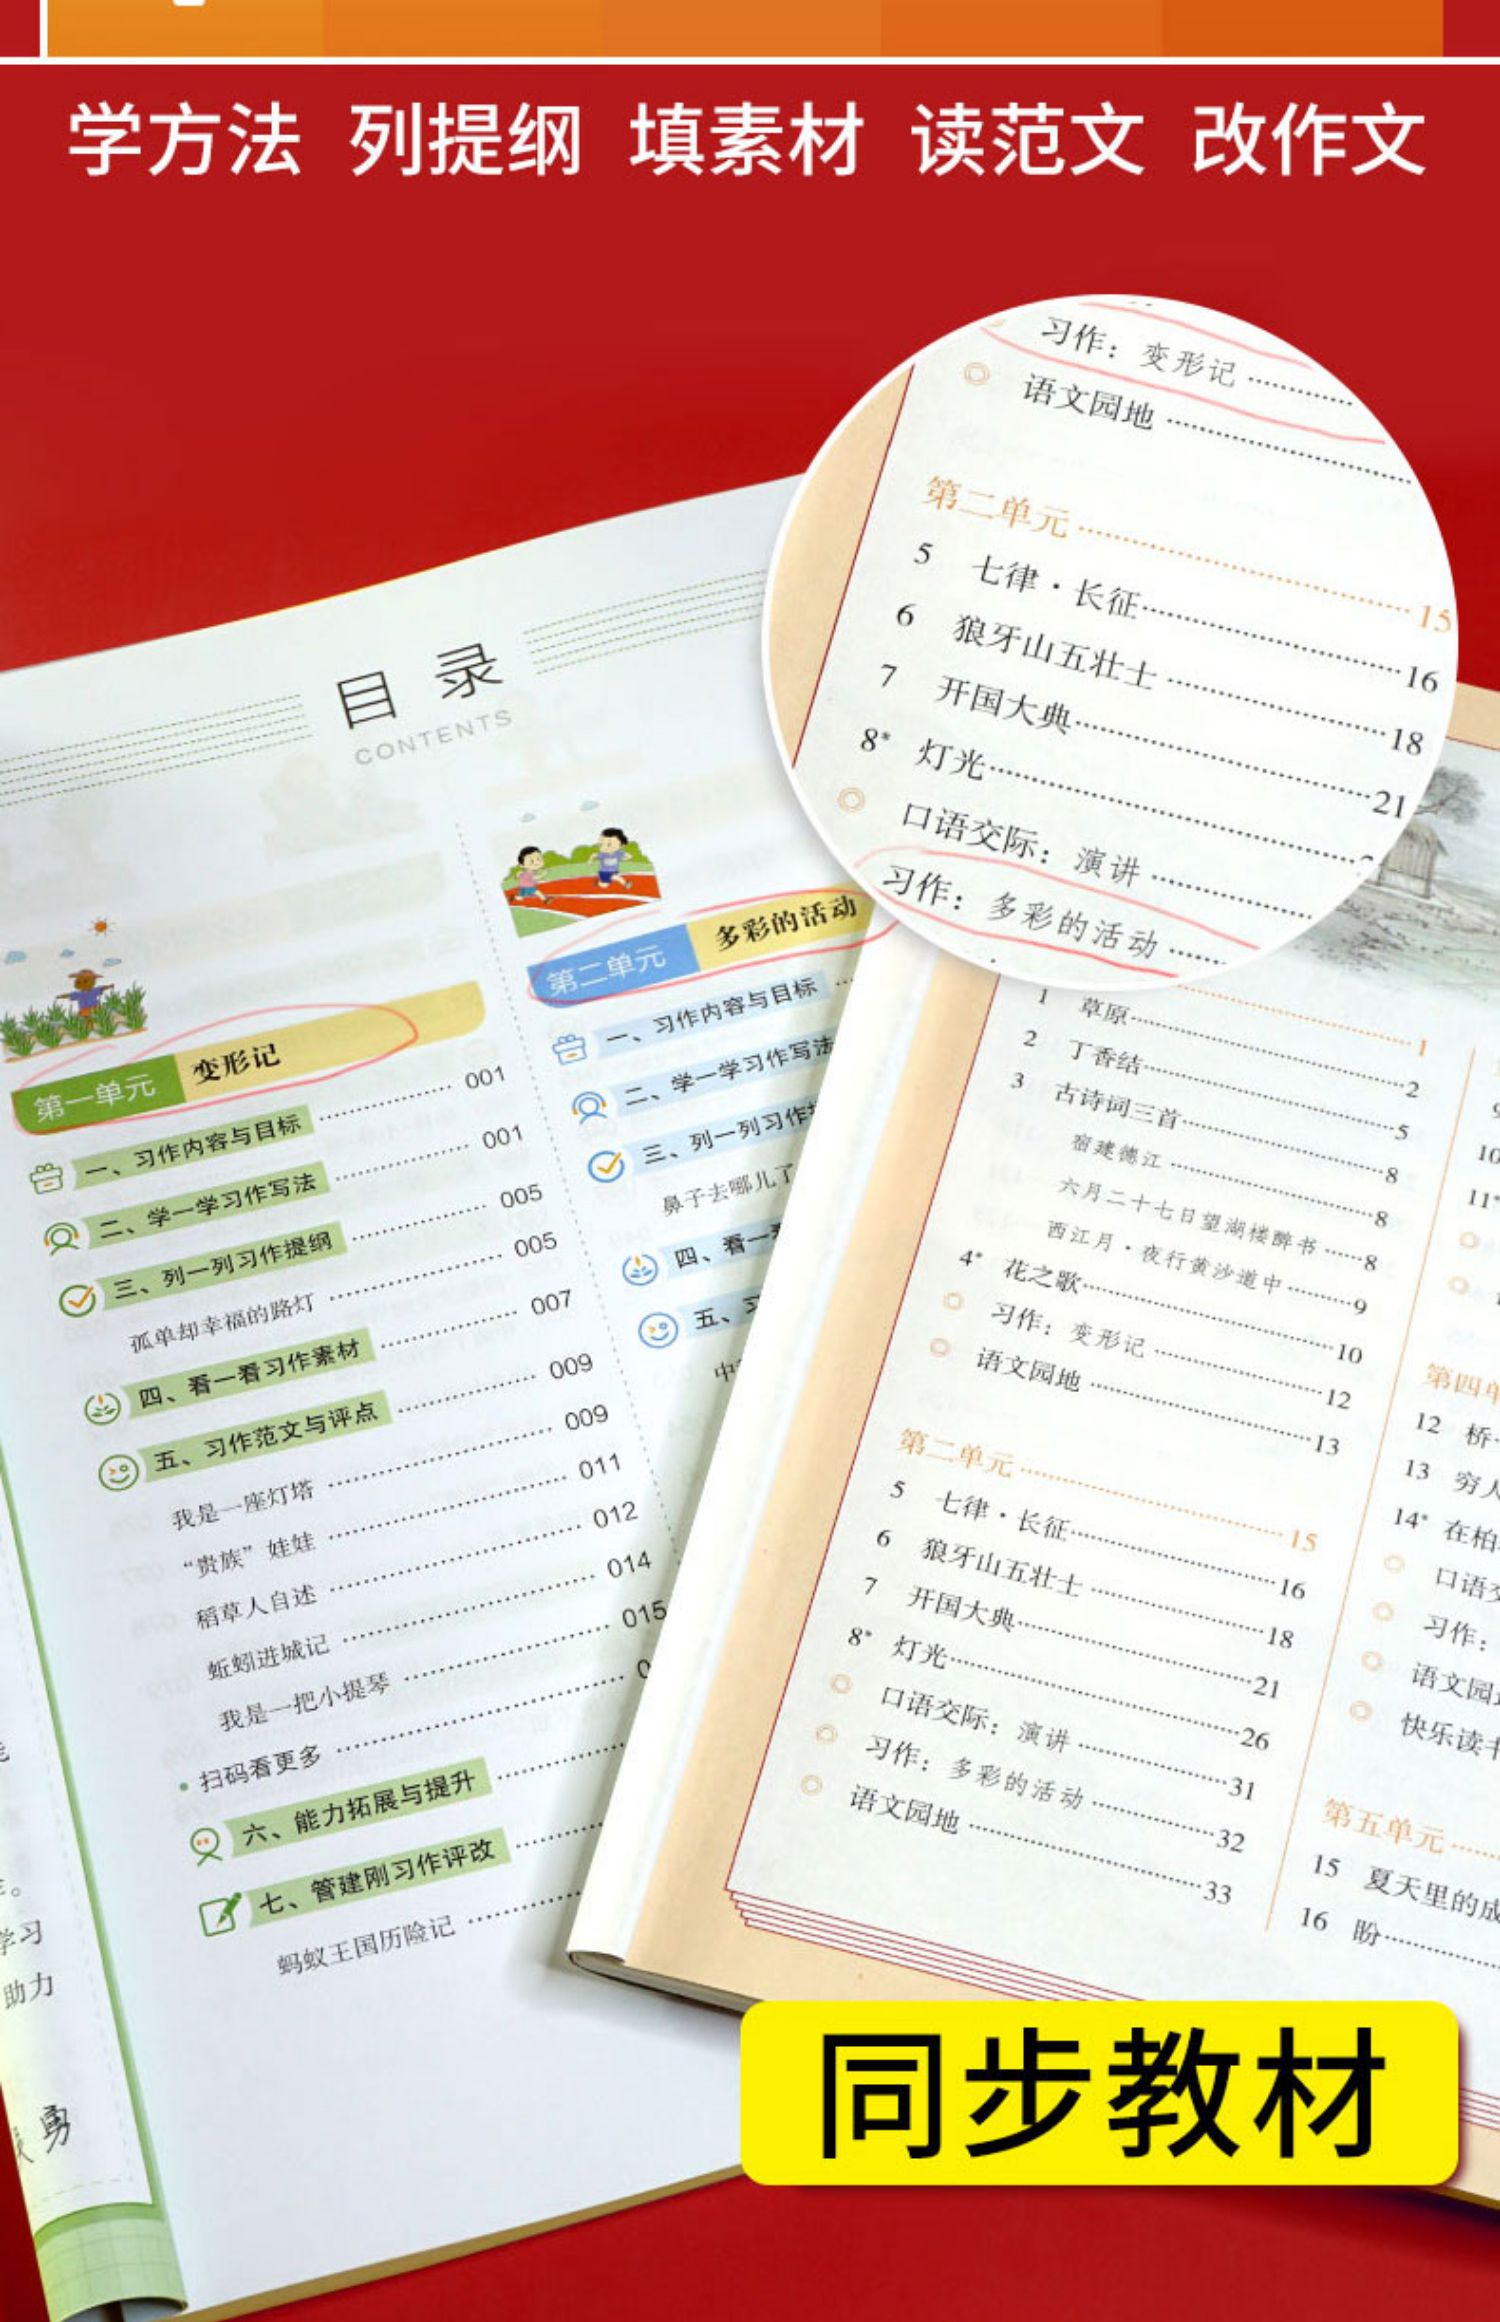 学方法 列提纲 填素材 读范文 改作文
习作：变形记
语文园地
第二单元 15
5 七律·长征 16
6 狼牙山五壮士 18
7 开国大典 21
8* 灯光
口语交际：演讲
习作：多彩的活动
目录
CONTENTS
第一单元 变形记
一、习作内容与目标 001
二、学一学习作写法 001
三、列一列习作提纲 005
孤单却幸福的路灯 005
四、看一看习作素材 007
五、习作范文与评点 009
我是一座灯塔 009
“贵族”娃娃 011
稻草人自述 012
蚯蚓进城记 014
我是一把小提琴 015
扫码看更多
六、能力拓展与提升
七、管建刚习作评改
蚂蚁王国历险记
第二单元 多彩的活动
一、习作内容与目标
二、学一学习作写法
三、列一列习作
鼻子去哪儿了
四、看一看
五、习
中
1 草原 2
2 丁香结 5
3 古诗词三首 8
宿建德江 8
六月二十七日望湖楼醉书 8
西江月·夜行黄沙道中 9
4* 花之歌 10
习作：变形记 12
语文园地 13
第二单元 15
5 七律·长征 16
6 狼牙山五壮士 18
7 开国大典 21
8* 灯光 26
口语交际：演讲 31
习作：多彩的活动 32
语文园地 33
10
11*
第四单
12 桥
13 穷人
14* 在柏
口语交
习作：
语文园
快乐读书
第五单元
15 夏天里的成
16 盼
学习
助力
勇
同步教材